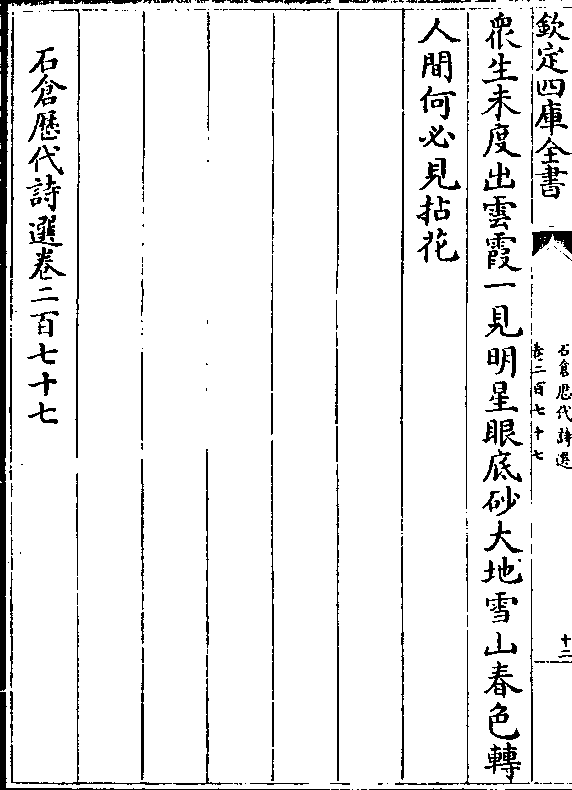 欽定四庫全書
石倉歷代詩選
卷二百七十七
十二
衆生未度出雲霞一見明星眼底砂大地雪山春色轉
人間何必見拈花
石倉歷代詩選卷二百七十七